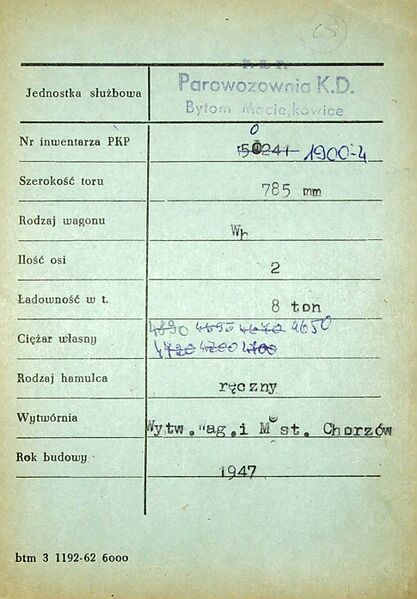 (3)
P. K. P.
Jednostka służbowa Parowozownia K.D.
Bytom Maciejkowice
Nr inwentarza PKP 50241 1900-4
Szerokość toru 785 mm
Rodzaj wagonu Wh
Ilość osi 2
Ładowność w t. 8 ton
4890 4695 4670 4650
Ciężar własny
4720 4200 4700
Rodzaj hamulca ręczny
Wytwórnia Wytw.Wag.i M st. Chorzów
Rok budowy 1947
btm 3 1192-62 6000